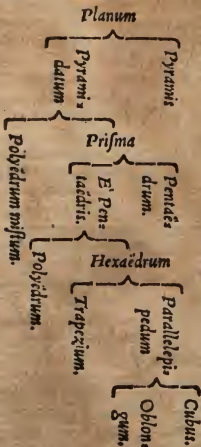 Planum
Pyramis
Pyrami-
datum
Priſma
Polyëdrum miſtum.
Pentaë-
drum.
E' Pen-
taëdris.
Hexaëdrum
Polyëdrum.
Parallelepi-
pedum
Trapezium.
Cubus.
Oblon-
gum.